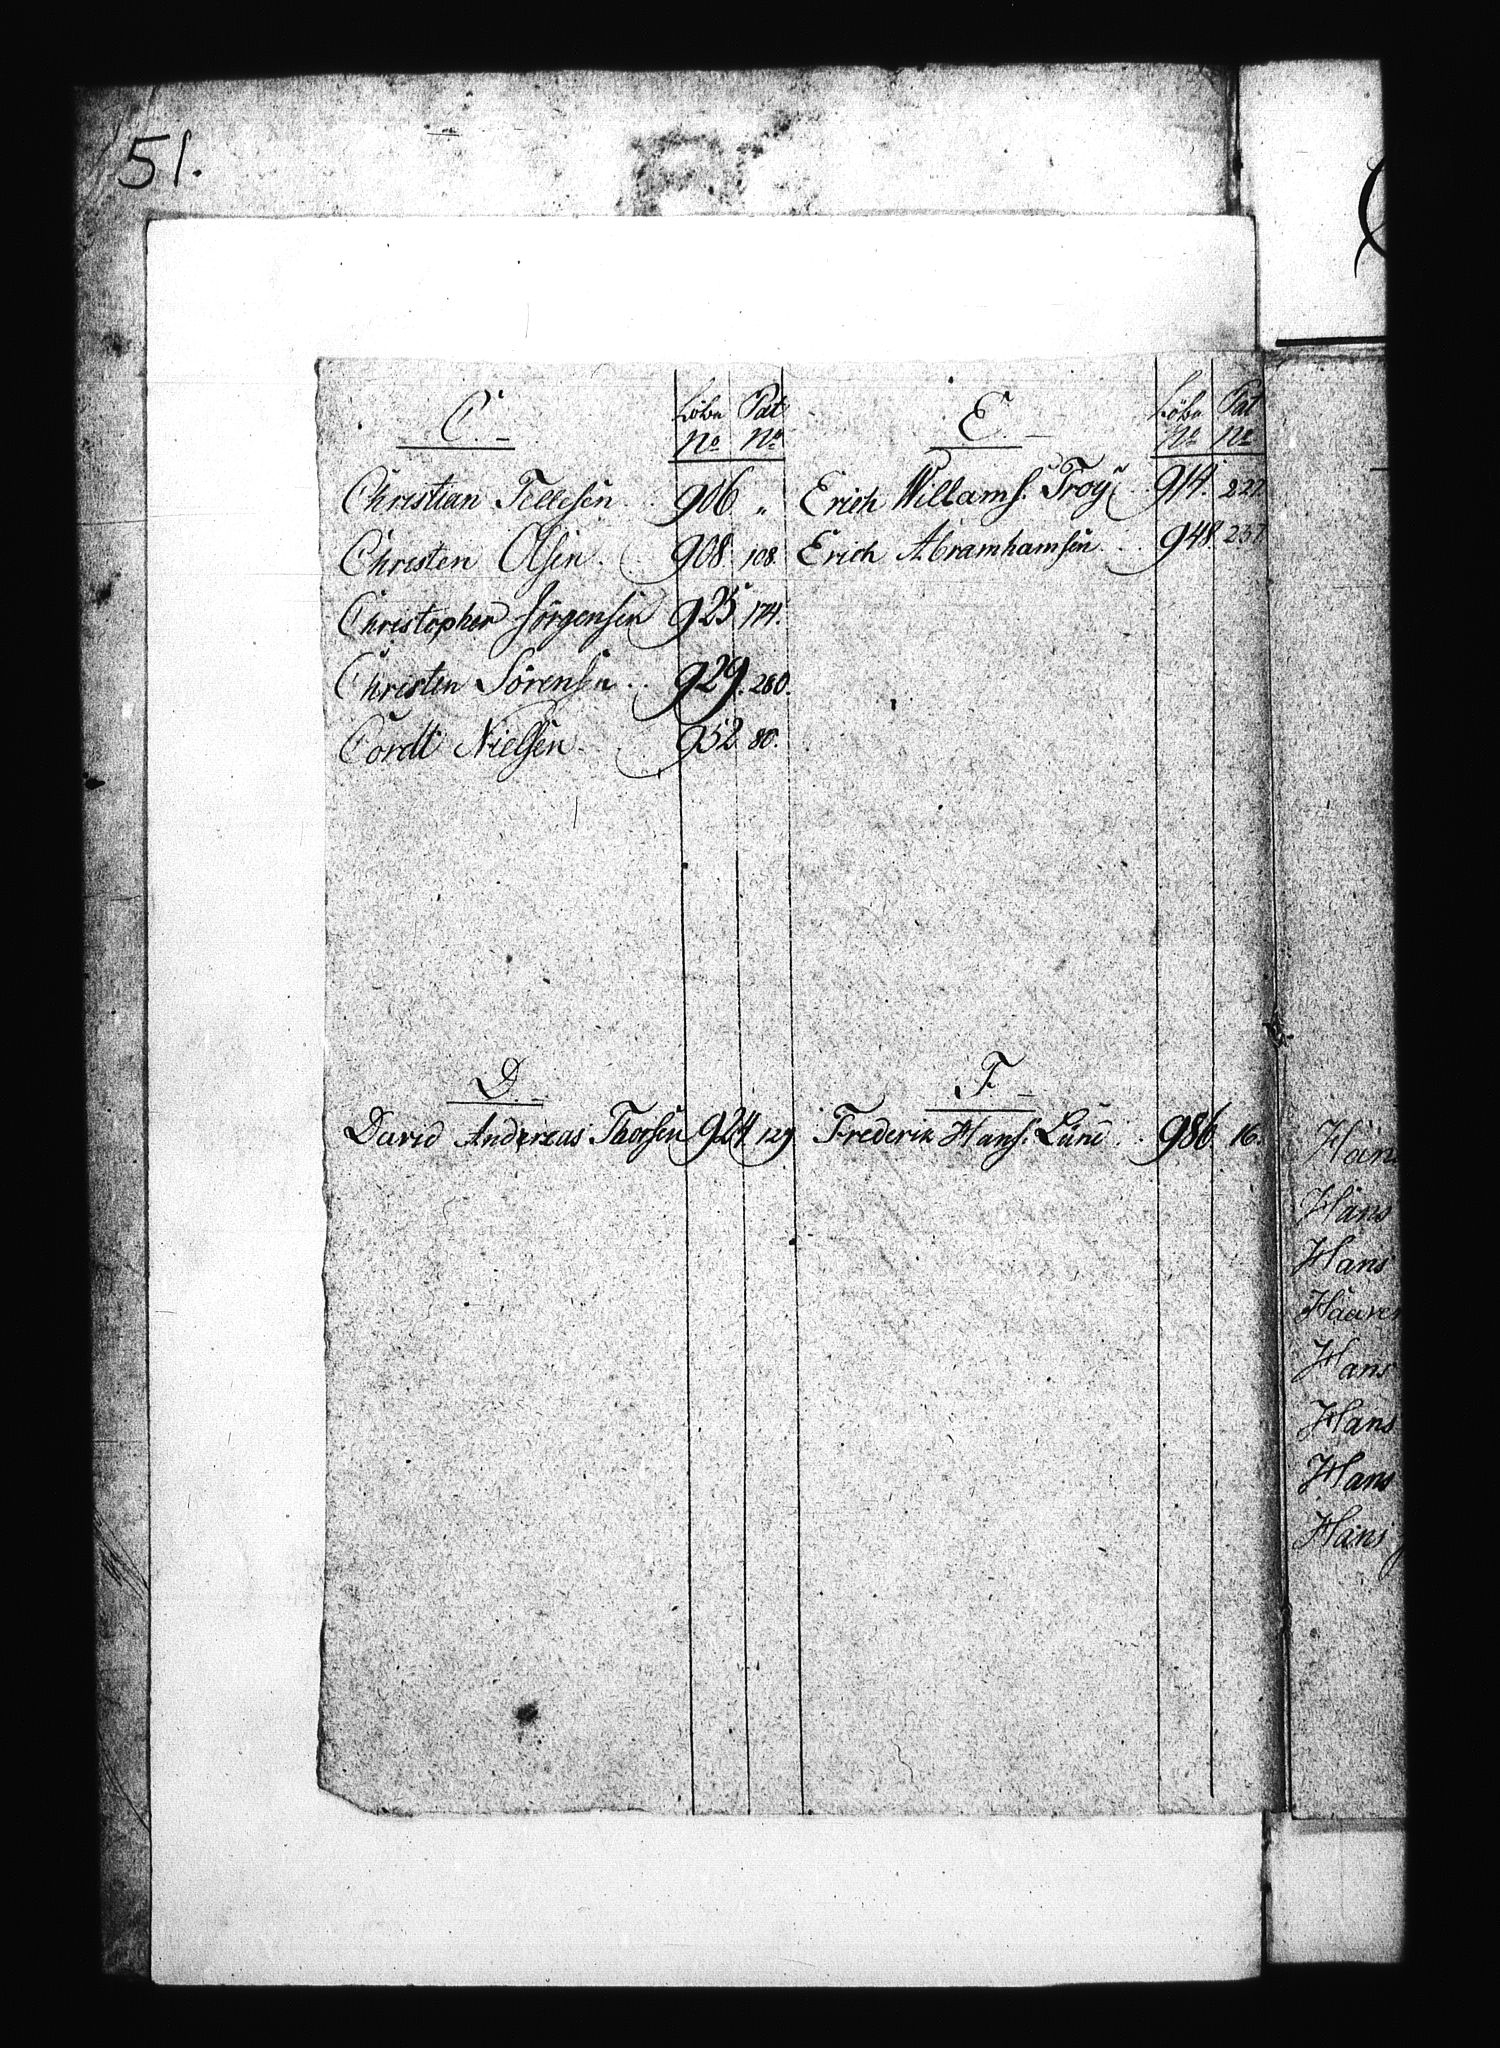 51.
C.
Løbe Pat
No No
Christian Tellesen 906 "
Christen Olsen 908. 108.
Christopher Jörgensen 925 174.
Christen Sörensen 929. 280.
Cordt Nielsen 952 80.
E.
Løbe Pat
No No
Erich Willams. Troy 914. 227.
Erich Abramhamsen 948. 237
D.
David Andreas Thorsen 924 129
F.
Frederik Hans. Lund 986 16.
Hans
Hans
Hans
Haaren
Hans
Hans
Hans
Hans